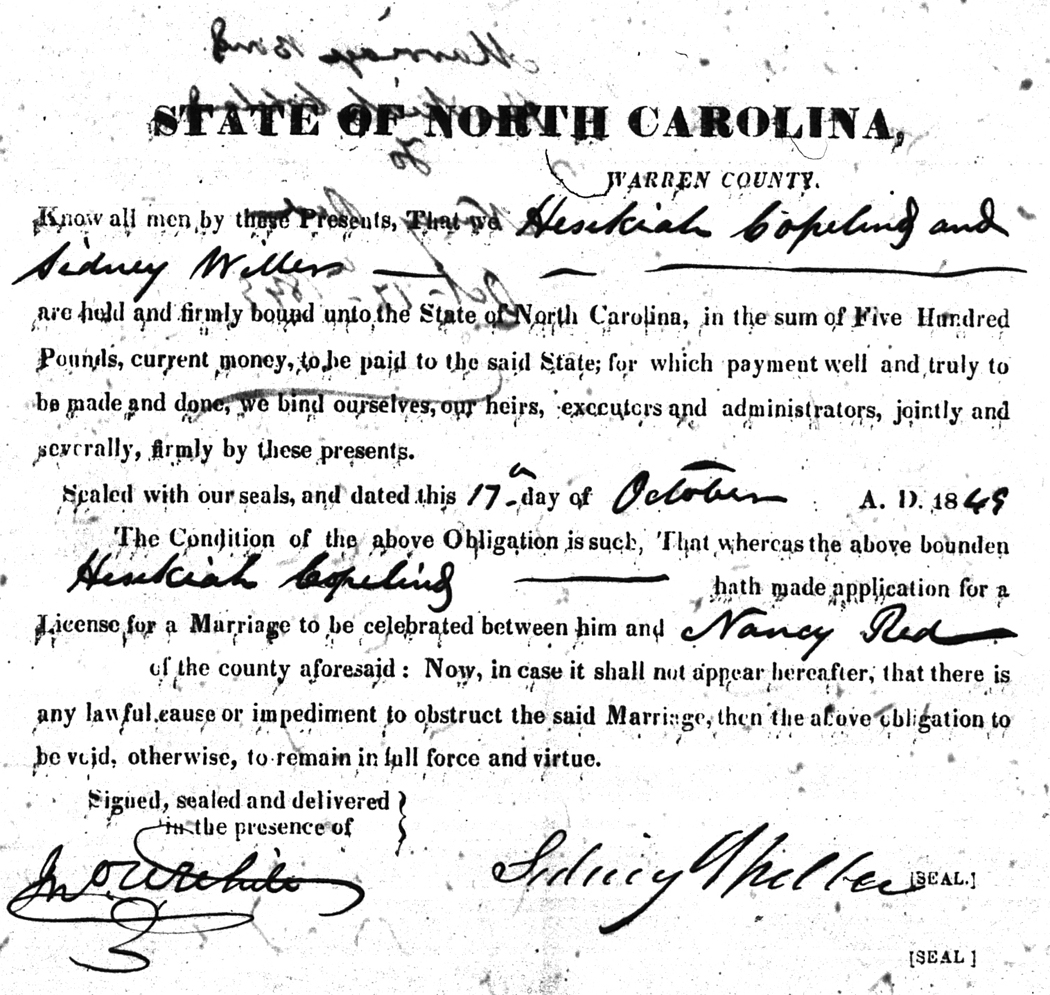 Marriage Bond
To
STATE OF NORTH CAROLINA,
WARREN COUNTY.
Know all men by these Presents, That we Hesekiah Copeling and
Sidney Willers
Oct. 17 - 18
are held and firmly bound unto the State of North Carolina, in the sum of Five Hundred
Pounds, current money, to be paid to the said State; for which payment well and truly to
be made and done, we bind ourselves, our heirs, executors and administrators, jointly and
severally, firmly by these presents.
Sealed with our seals, and dated this 17 day of October A. D. 1849
The Condition of the above Obligation is such, That whereas the above bounden
Hesekiah Copeling hath made application for a
License for a Marriage to be celebrated between him and Nancy Red
of the county aforesaid: Now, in case it shall not appear hereafter, that there is
any lawful cause or impediment to obstruct the said Marriage, then the above obligation to
be void, otherwise, to remain in full force and virtue.
Signed, sealed and delivered
in the presence of
Jno W White
Sidney [SEAL.]
[SEAL]